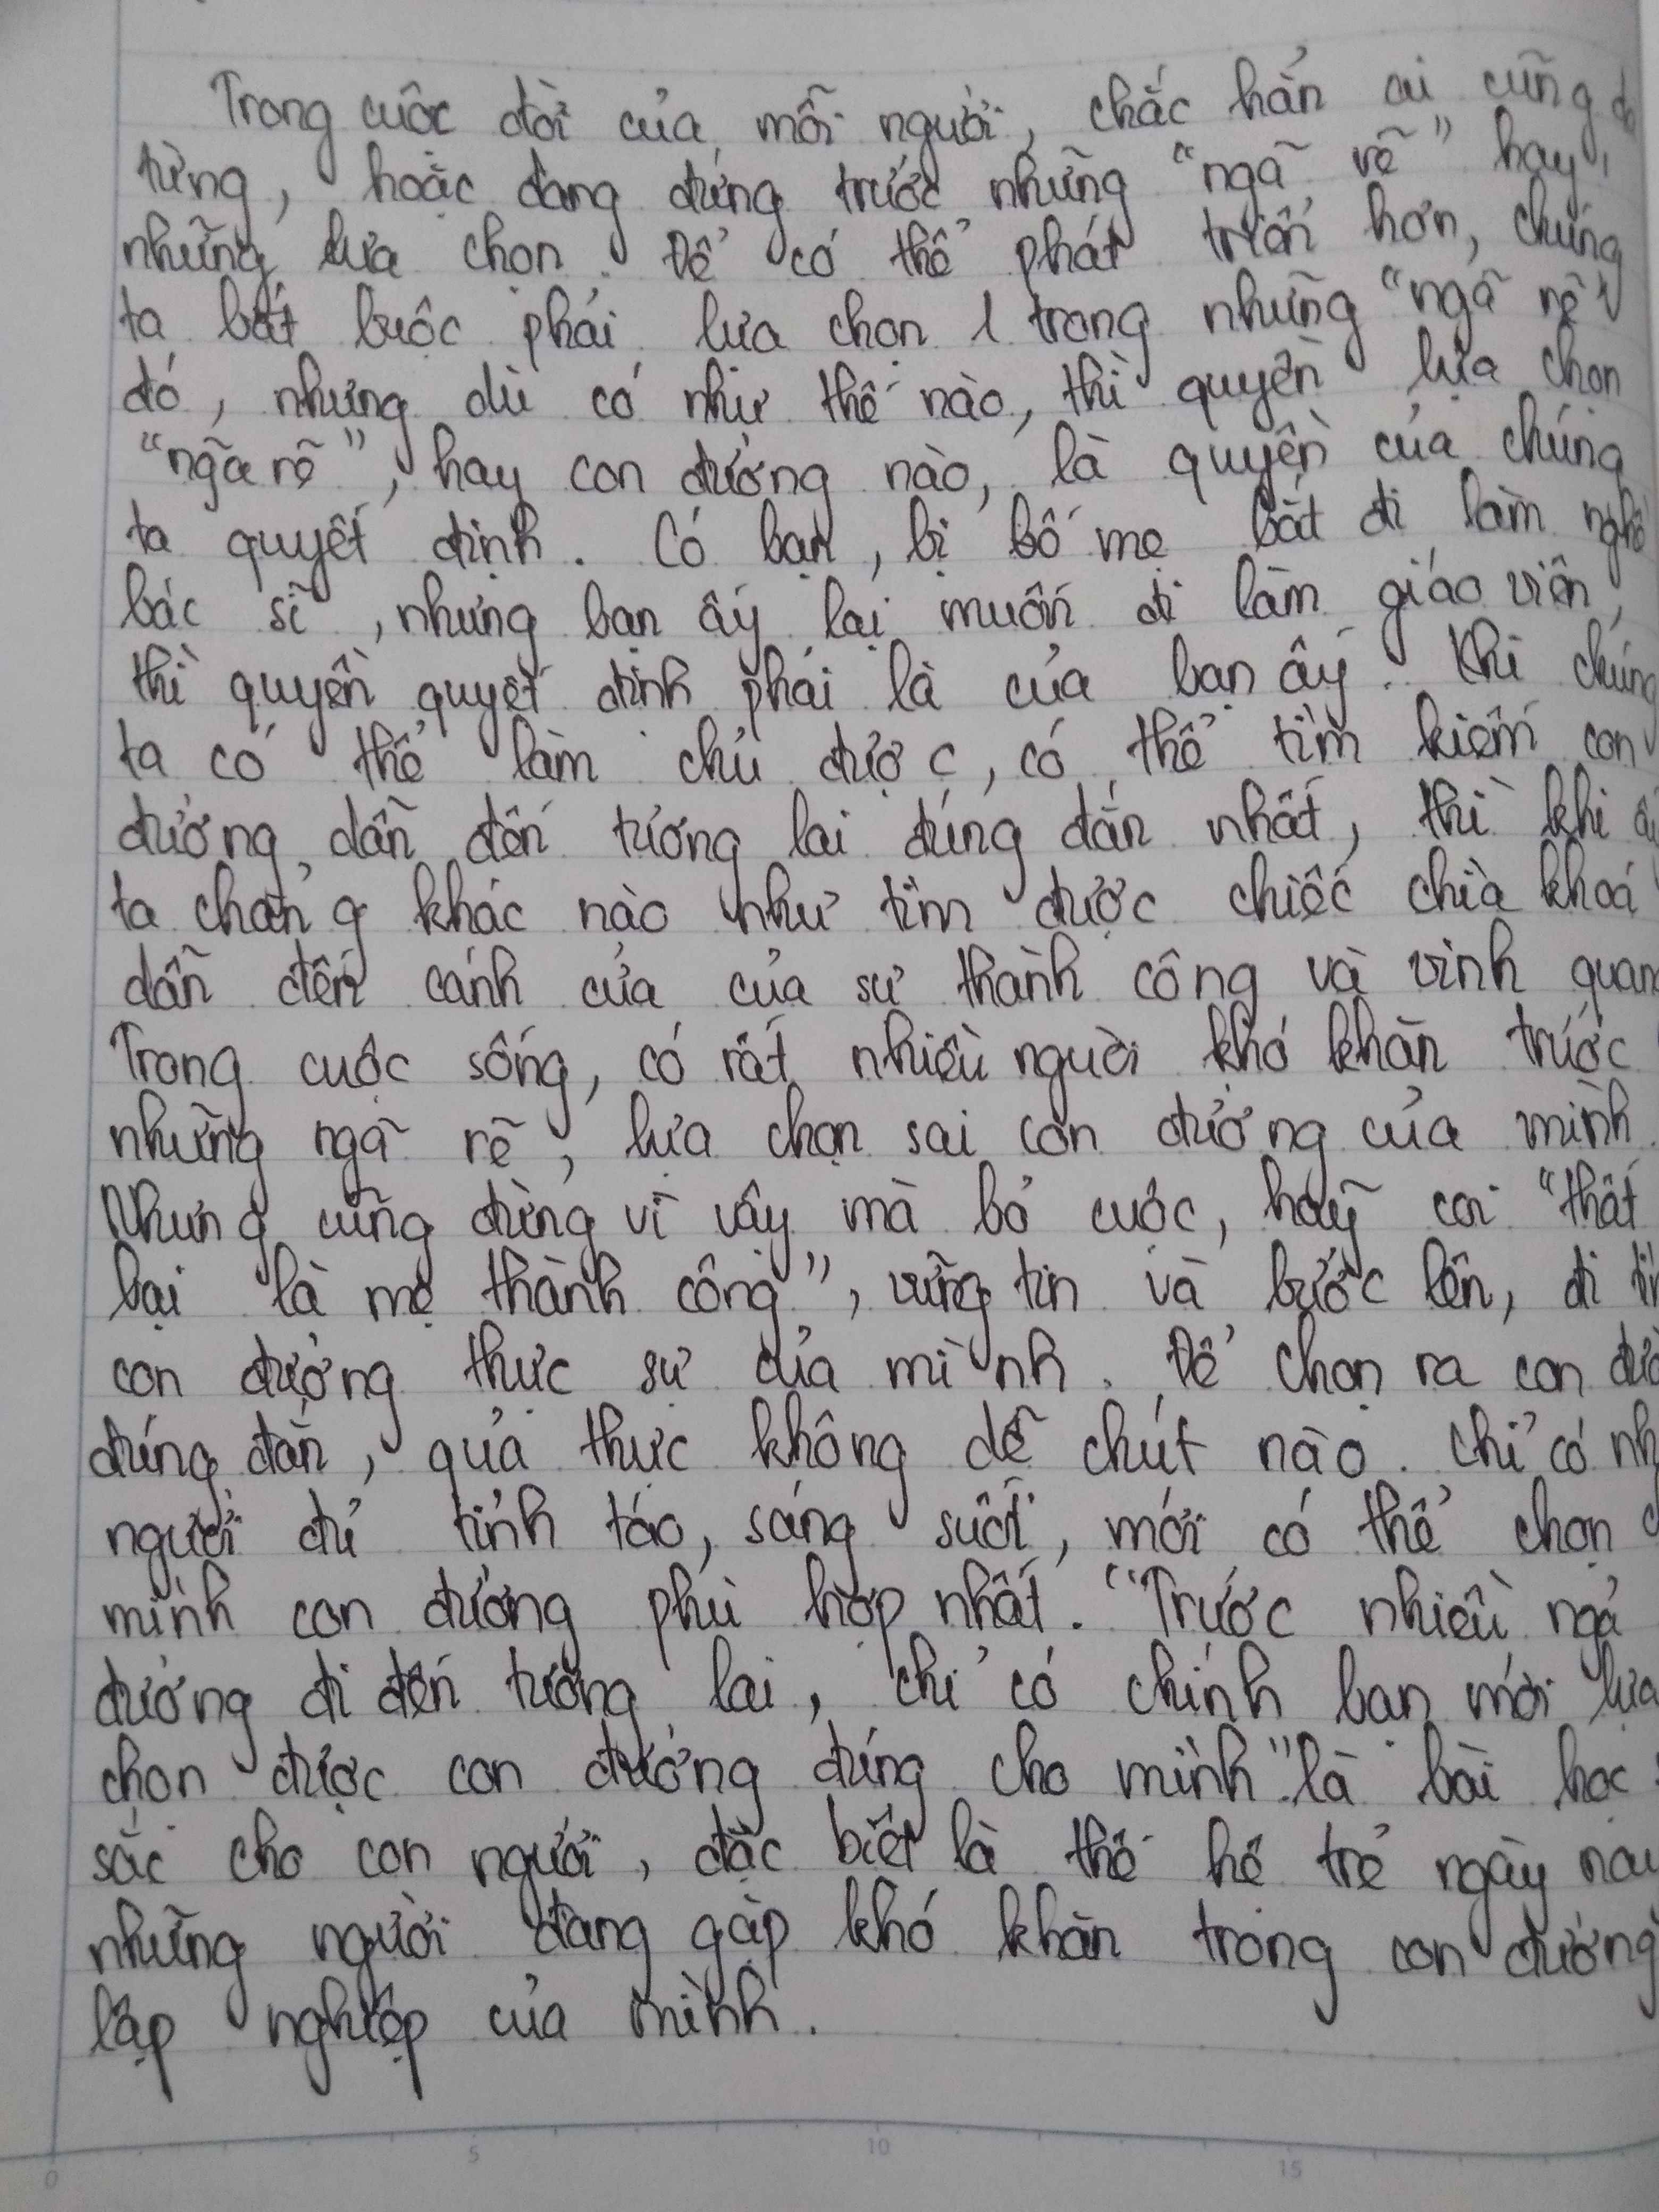 Trong cuộc đời của mỗi người, chắc hẳn ai cũng
từng, hoặc đang đứng trước những "ngã rẽ" hay
những lựa chọn. Để có thể phát triển hơn, chúng
ta bắt buộc phải lựa chọn 1 trong những "ngã rẽ"
đó, nhưng dù có như thế nào, thì quyền lựa chọn
"ngã rẽ", hay con đường nào, là quyền của chúng
ta quyết định. Có bạn, bị bố mẹ bắt đi làm nghề
bác sĩ, nhưng bạn ấy lại muốn đi làm giáo viên,
thì quyền quyết định phải là của bạn ấy. Khi chúng
ta có thể làm chủ được, có thể tìm kiếm con
đường dẫn đến tương lai đúng đắn nhất, thì khi
ta chẳng khác nào như tìm được chiếc chìa khoá
dẫn đến cánh cửa của sự thành công và vinh quang
Trong cuộc sống, có rất nhiều người khó khăn trước
những ngã rẽ, lựa chọn sai con đường của mình.
Nhưng cũng đừng vì vậy mà bỏ cuộc, hãy coi "thất
bại là mẹ thành công", vững tin và bước lên, đi
con đường thực sự của mình. Để chọn ra con
đúng đắn, quả thực không dễ chút nào. Chỉ có
người đủ tỉnh táo, sáng suốt, mới có thể chọn
mình con đường phù hợp nhất. "Trước nhiều ngả
đường đi đến tương lai, chỉ có chính bạn mới lựa
chọn được con đường đúng cho mình" là bài học
sắc cho con người, đặc biệt là thế hệ trẻ ngày
những người đang gặp khó khăn trong con đường
lập nghiệp của mình.